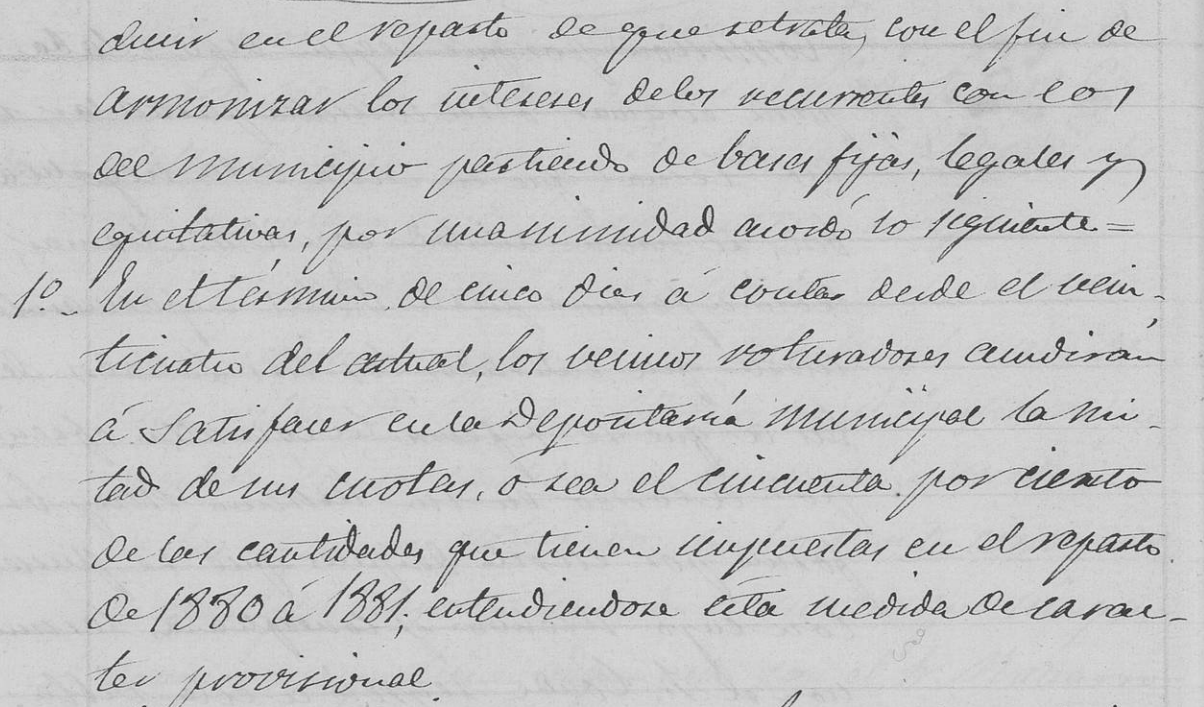 ducir en el reparto de que se trata, con el fin de
armonizar los intereses de los recurrentes con los
del municipio partiendo de bases fijas, legales y
equitativas, por unanimidad acordó lo siguiente=
1º. En el término de cinco dias á contar desde el vein-
ticuatro del actual, los vecinos roturadores acudirán
á satisfacer en la Depositaría Municipal la mi-
tad de sus cuotas, o sea el cincuenta por ciento
de las cantidades que tienen impuestas en el reparto
de 1880 á 1881, entendiendose esta medida de carac-
ter provisional